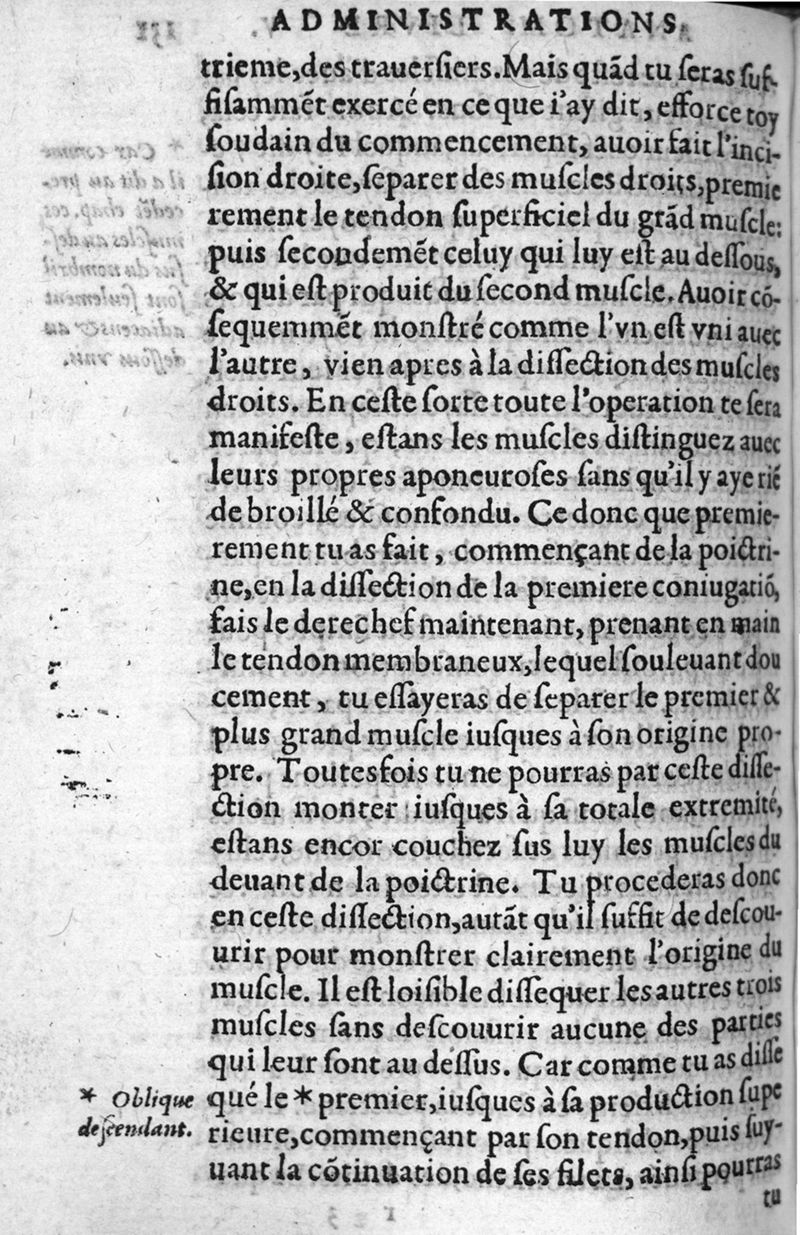 ADMINISTRATIONS.
trieme,des trauerſiers.Mais quãd tu ſeras ſuf-
fiſammẽt exercé en ce que i'ay dit, efforce toy
ſoudain du commencement, auoir fait l'inci-
ſion droite,ſeparer des muſcles droits,premie
rement le tendon ſuperficiel du grãd muſcle:
puis ſecondemẽt celuy qui luy eſt au deſſous,
& qui eſt produit du ſecond muſcle. Auoir cõ-
ſequemmẽt monſtré comme l'vn eſt vni auec
l'autre, vien apres à la diſſection des muſcles
droits. En ceſte ſorte toute l'operation te ſera
manifeſte, eſtans les muſcles diſtinguez auec
leurs propres aponeuroſes ſans qu'il y aye riẽ
de broillé & confondu. Ce donc que premie-
rement tu as fait, commençant de la poictri-
ne,en la diſſection de la premiere coniugatiõ,
fais le derechef maintenant, prenant en main
le tendon membraneux,lequel ſouleuant dou
cement, tu eſſayeras de ſeparer le premier &
plus grand muſcle iuſques à ſon origine pro-
pre. Toutesfois tu ne pourras par ceſte diſſe-
ction monter iuſques à ſa totale extremité,
eſtans encor couchez ſus luy les muſcles du
deuant de la poictrine. Tu procederas donc
en ceſte diſſection,autãt qu'il ſuffit de deſcou-
urir pour monſtrer clairement l'origine du
muſcle. Il eſt loiſible diſſequer les autres trois
muſcles ſans deſcouurir aucune des parties
qui leur ſont au deſſus. Car comme tu as diſſe
qué le * premier,iuſques à ſa production ſupe
rieure,commençant par ſon tendon,puis ſuy-
uant la cõtinuation de ſes filets, ainſi pourras
tu
* Oblique
deſcendant.